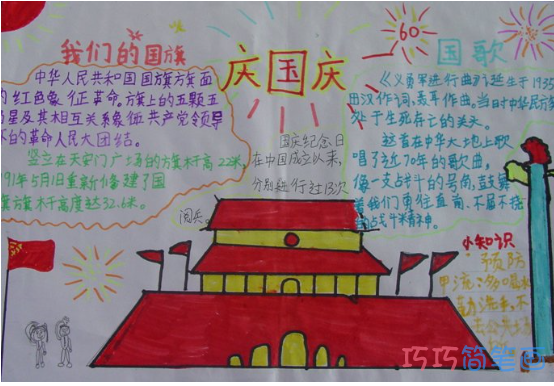 我们的国旗
中华人民共和国国旗旗面
的红色象征革命。旗上的五颗五
星及其相互关系象征共产党领导
的革命人民大团结。
竖立在天安门广场的旗杆高22米,
91年5月1日重新修建了国
旗旗杆高度达32.6米。
庆国庆
60
国庆纪念日
在中国成立以来,
分别进行过13次
阅兵。
国歌
《义勇军进行曲》诞生于1935
田汉作词,聂耳作曲。当时中华民族
处于生死存亡的关头。
这首在中华大地上歌
唱了近70年的歌曲,
像一支战斗的号角,鼓舞
着我们勇往直前、不屈不挠
的战斗精神。
小知识
预防
甲流:多喝水
勤洗手,不
去公共场
巧巧简笔画